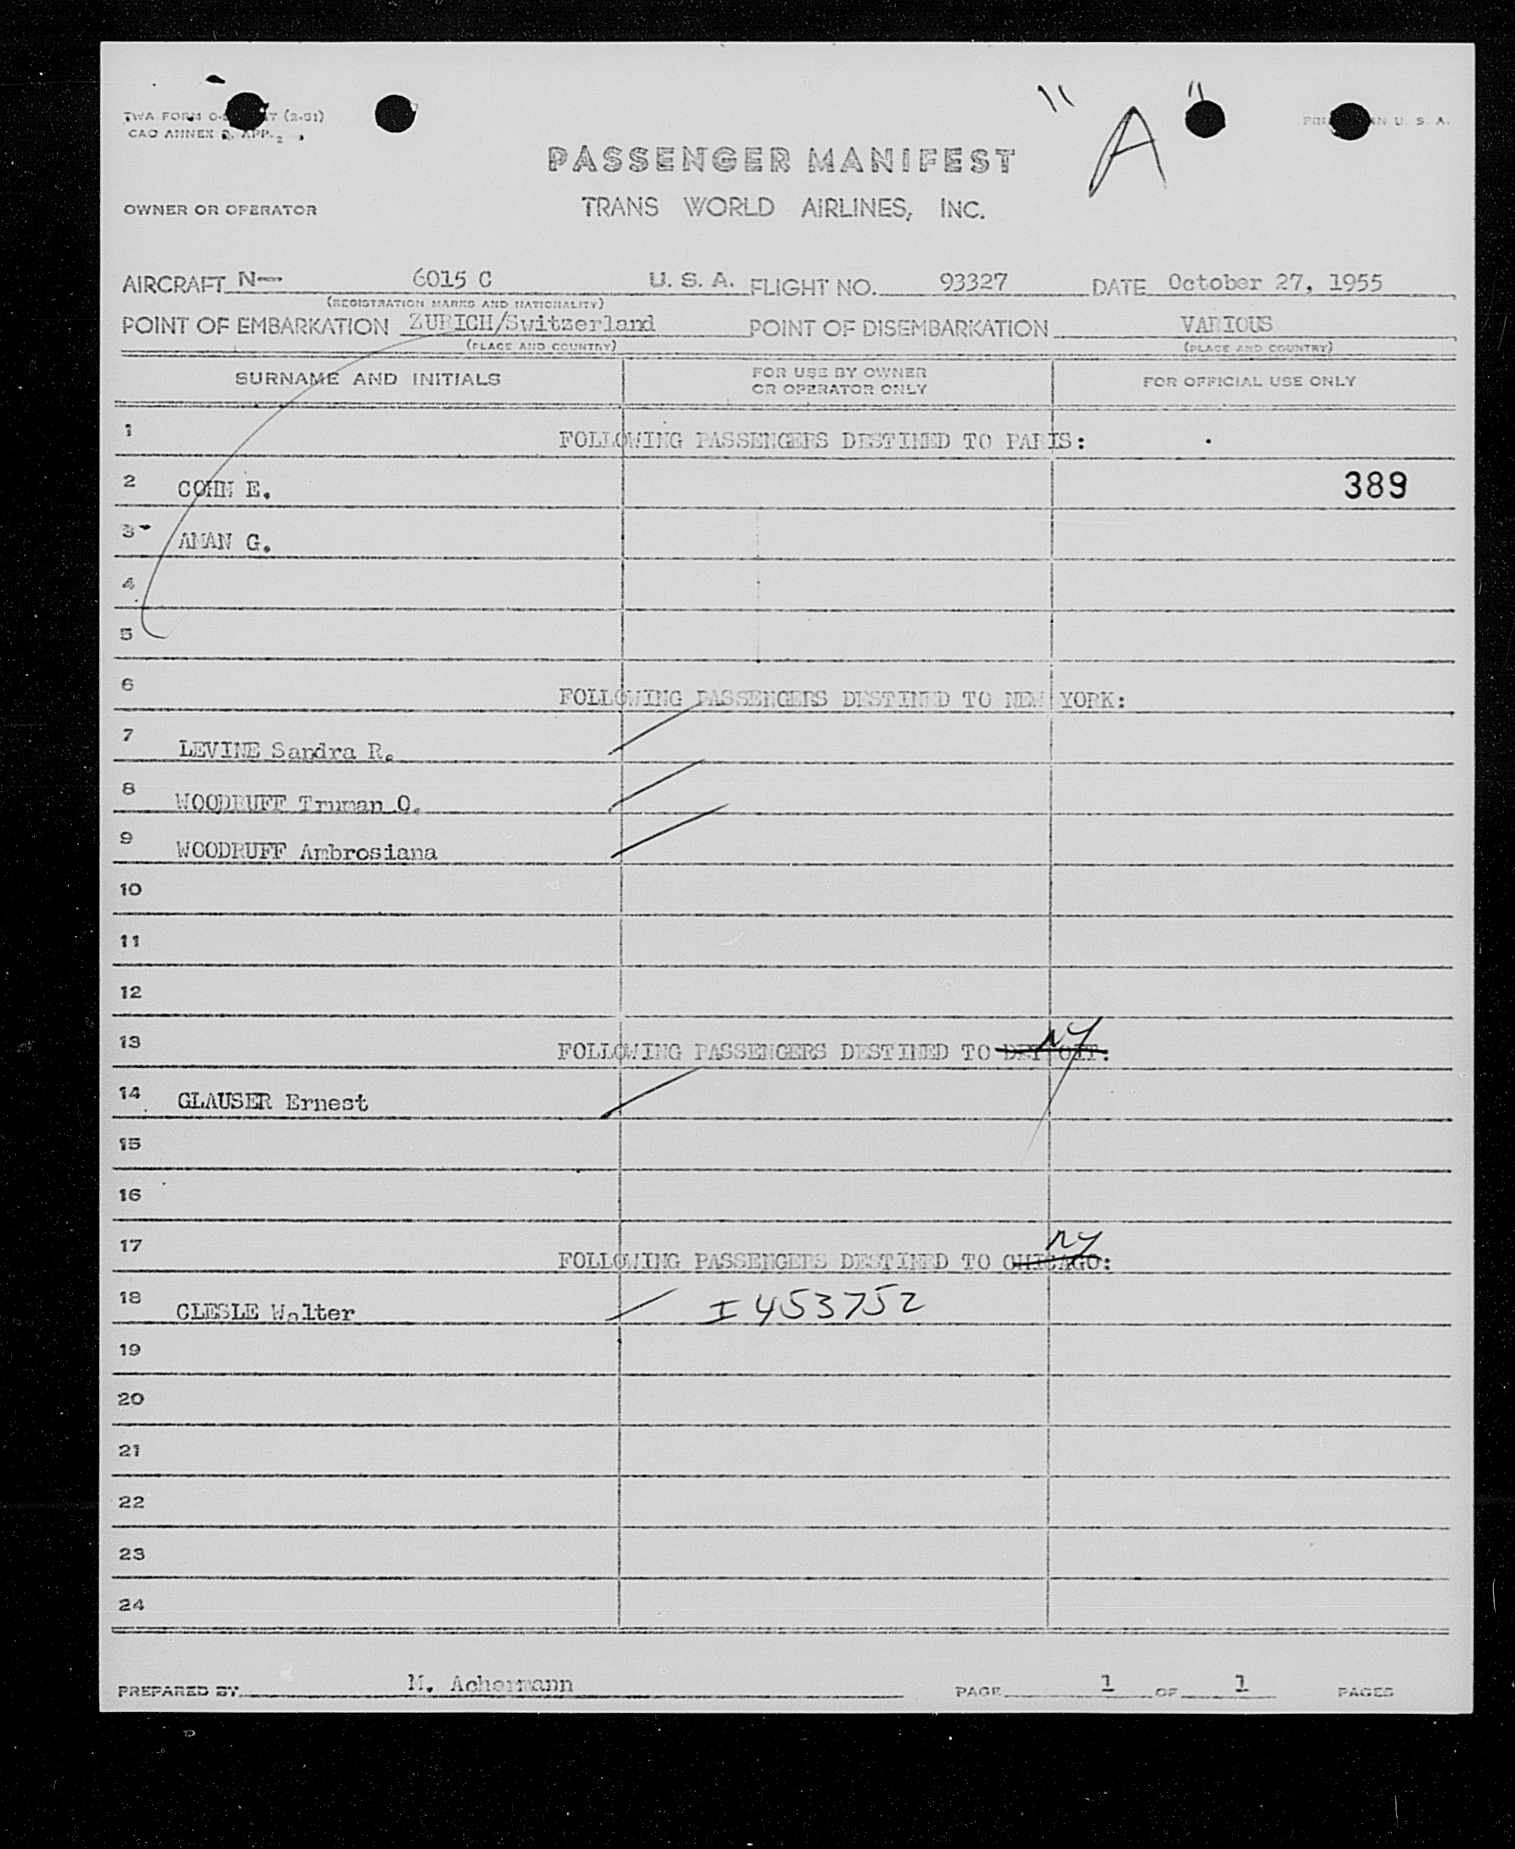 "A"
TWA FORM (2-51)
CAO ANNEX 9, APP. 2
U. S. A.
PASSENGER MANIFEST
OWNER OR OPERATOR
TRANS WORLD AIRLINES, INC.
AIRCRAFT N— 6015 C U. S. A. FLIGHT NO. 93327 DATE October 27, 1955
(REGISTRATION MARKS AND NATIONALITY)
POINT OF EMBARKATION ZURICH/Switzerland POINT OF DISEMBARKATION VARIOUS
(PLACE AND COUNTRY) (PLACE AND COUNTRY)
SURNAME AND INITIALS FOR USE BY OWNER OR OPERATOR ONLY FOR OFFICIAL USE ONLY
1 FOLLOWING PASSENGERS DESTINED TO PARIS:
2 COHN E. 389
3 AMAN G.
4
5
6 FOLLOWING PASSENGERS DESTINED TO NEW YORK:
7 LEVINE Sandra R.
8 WOODRUFF Truman O.
9 WOODRUFF Ambrosiana
10
11
12
13 FOLLOWING PASSENGERS DESTINED TO DETROIT: NY
14 GLAUSER Ernest
15
16
17 FOLLOWING PASSENGERS DESTINED TO CHICAGO: NY
18 CLESLE Walter I 453752
19
20
21
22
23
24
PREPARED BY M. Achermann PAGE 1 OF 1 PAGES